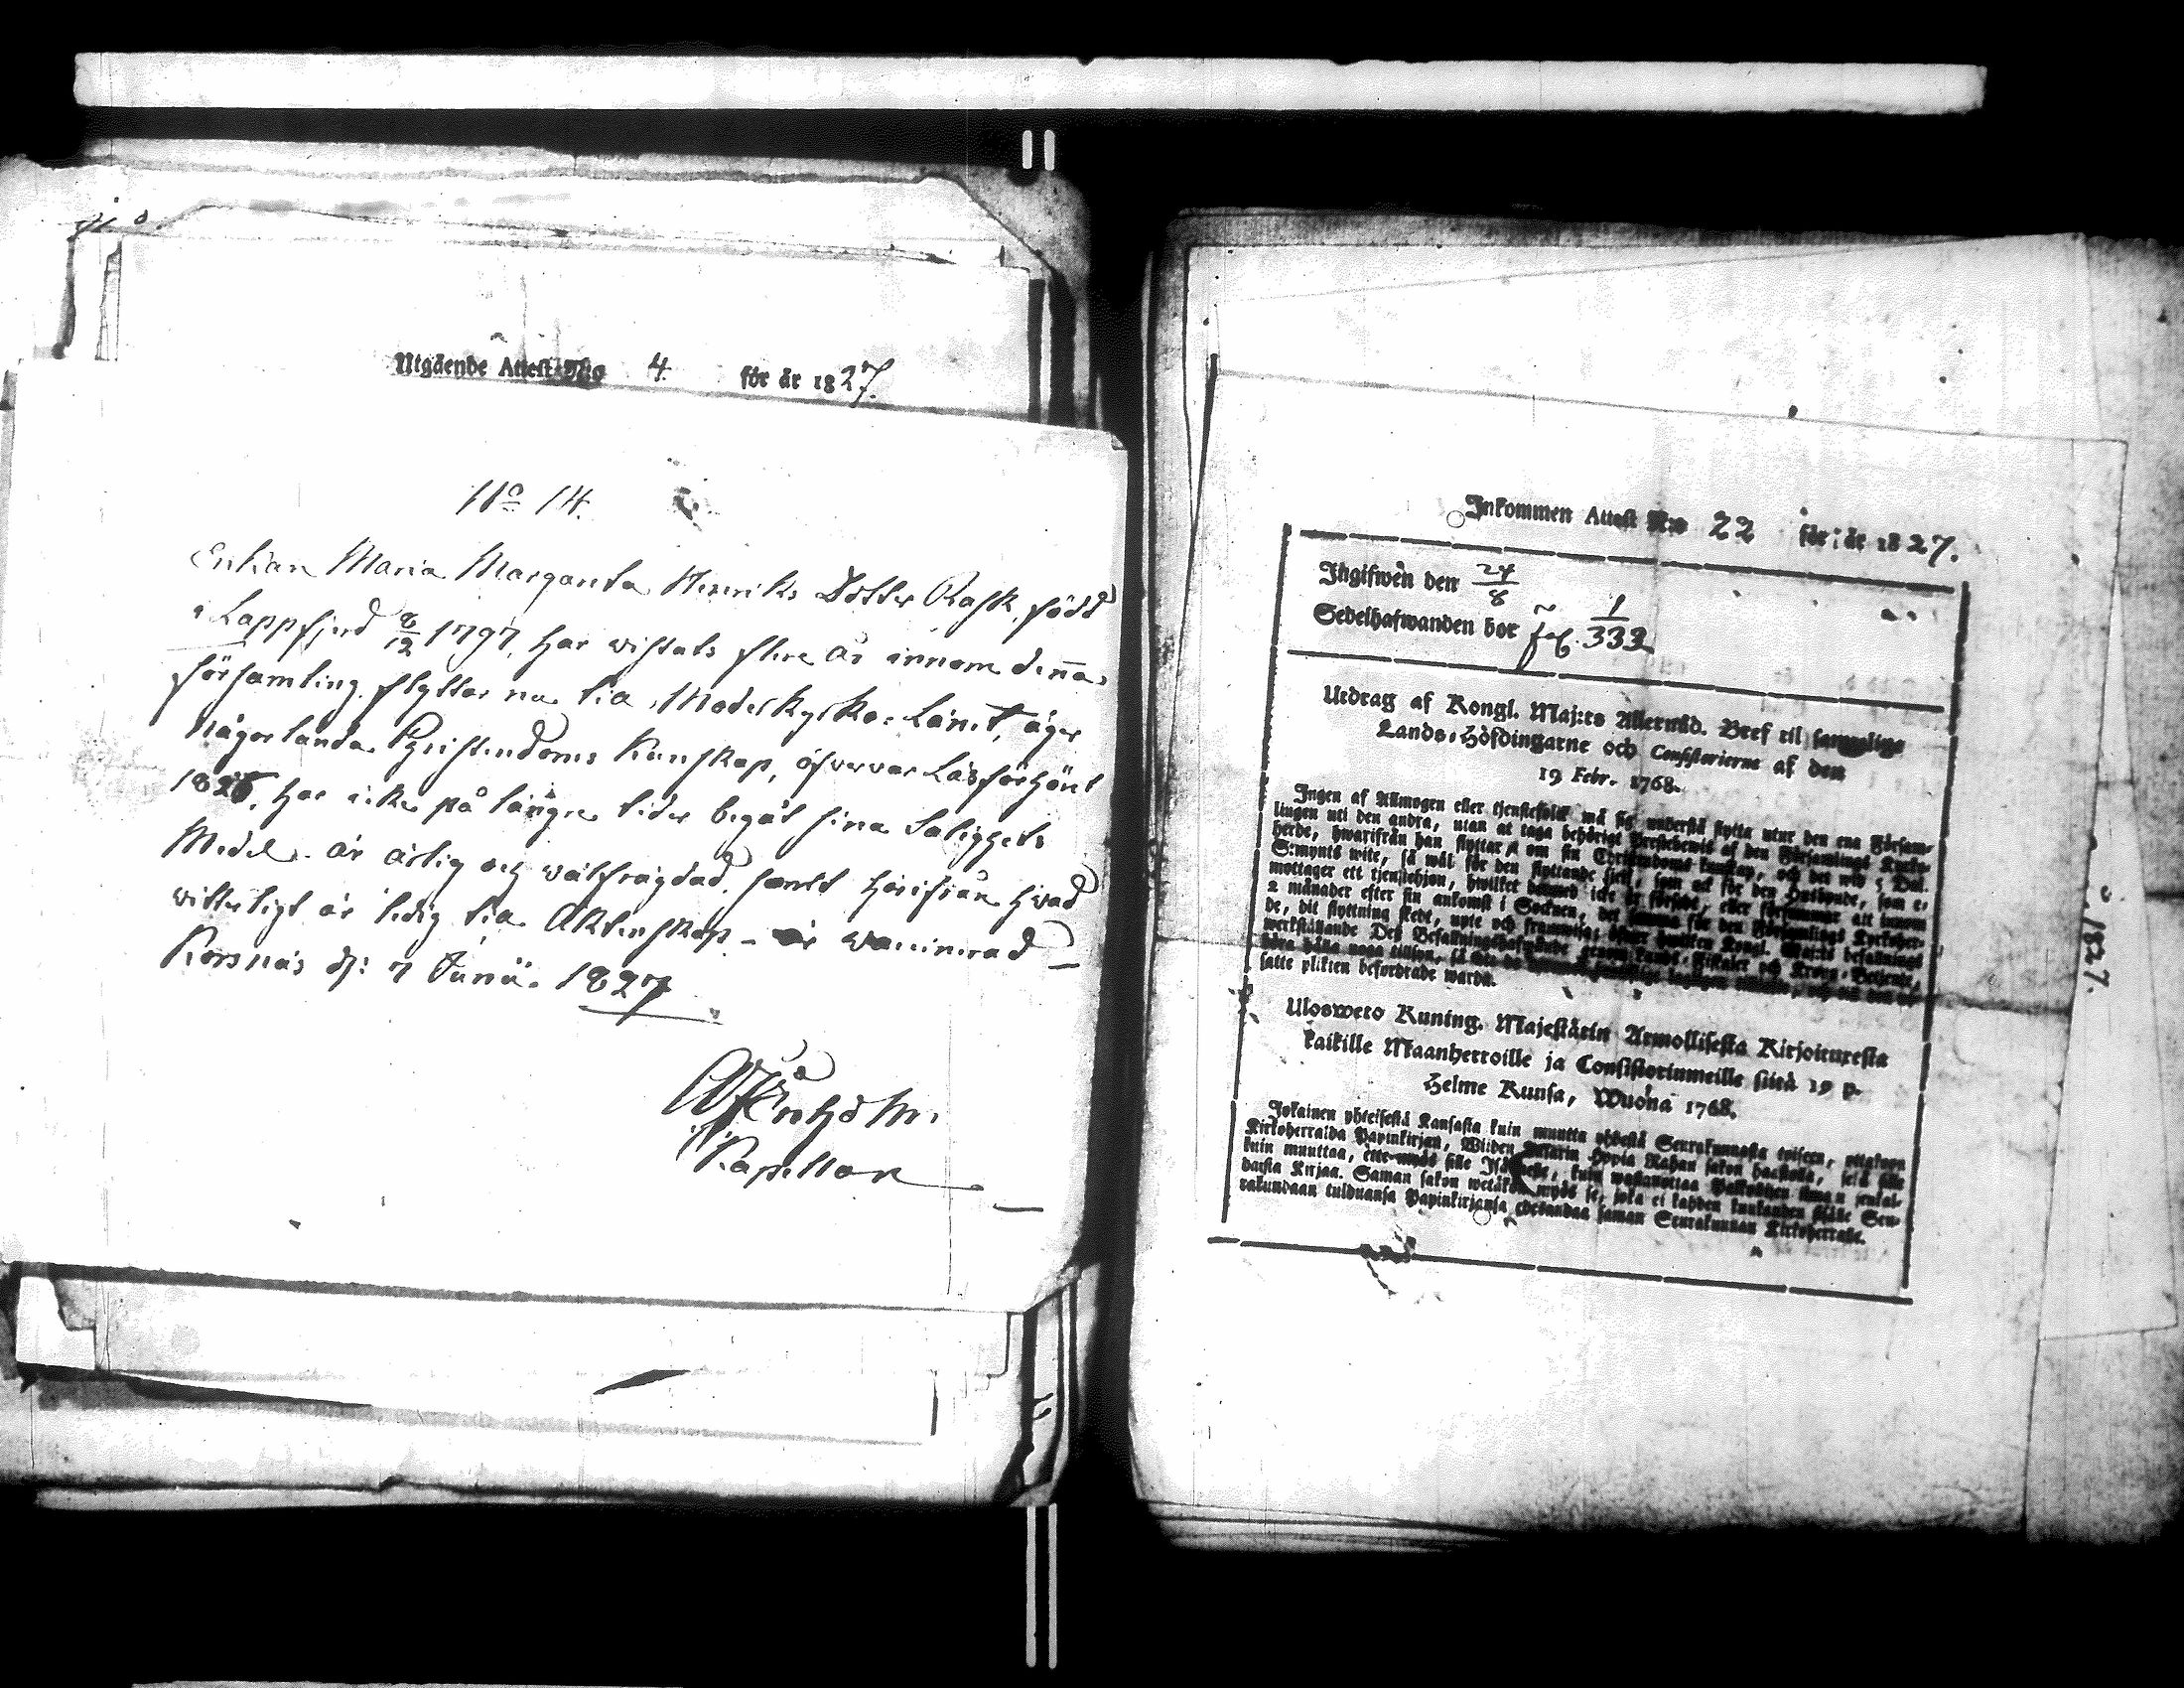 Utgående Attest N:o 4 för år 1827.
No 14.
Enkan Maria Margareta Henriks Dotter Rask, född
i Lappfjerd 8/12 1797, har vistats flere år innom denna
församling, flyttar nu til Moderkyrko-Länet, äger
någorlunda Christendoms Kunskap, öfvervar Läsförhöret
1826, har icke på längre tider begåt sina Salighets
Medel. är ärlig och välfrägdad, samt härifrån hvad
vitterligt är ledig til Äktenskap – är vaccinerad –
Korsnäs d: 7 Junii. 1827
Kapellan
Inkommen Attest N:o 22 för år 1827.
Ingifwen den 24/8
Sedelhafwanden bor fol. 1/333
Utdrag af Kongl. Maj:ts Allernåd. Bref til samtelige
Lands-Höfdingarne och Consistorierne af den
19 Febr. 1768.
Ingen af Allmogen eller tjenstefolck må sig understå flytta utur den ena Försam-
lingen uti den andra, utan at taga behörigt Prestebewis af den Församlings Kyrko-
herde, hwarifrån han flyttar, om sin Christendoms kunskap, och det wid 5 Dal.
S:mynts wite, så wäl för den flyttande sielf, som ock för den Husbonde, som e-
mottager ett tjenstehjon, hwilket dermed icke är försedt, eller försummar att innom
2 månader efter sin ankomst i Socknen, det samma för den Församlings Kyrkoher-
de, dit flyttning skedt, upte och framwisa; öfwer hwilken Kongl. Maj:ts befallnings
werkställande Dess Befallningshafwande genom Lands-Fiskaler och Krono-Betjente,
höra hålla noga tillsyn, så
satte plikten befordrade warda.
Ulosweto Kuning. Majestätin Armollisesta Kirjoituxesta
kaikille Maanherroille ja Consistoriumeille siitä 19 p.
Helme Kuusa, Wuona 1768.
Jokainen yhteisestä Kansasta kuin muutta yhdestä Seurakunnasta toiseen, ottakoon
Kirkoherralda Papinkirjan, Wiiden Talarin Hopia Rahan sakon haastolla, sekä sille
kuin muuttaa, että myös sille Isännelle, kuin wastanottaa Palkollisen ilman senkal-
daista Kirjaa. Saman sakon wetäkön myös se, joka ei kahden kuukauden sisälle Seu-
rakundaan tulduansa Papinkirjansa edesandaa saman Seurakunnan Kirkoherralle.
1827.